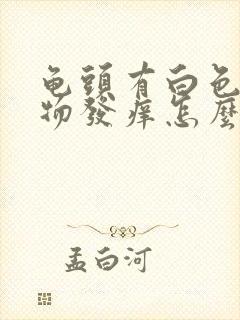 龟頭有白色
物發痒怎麽
孟白河